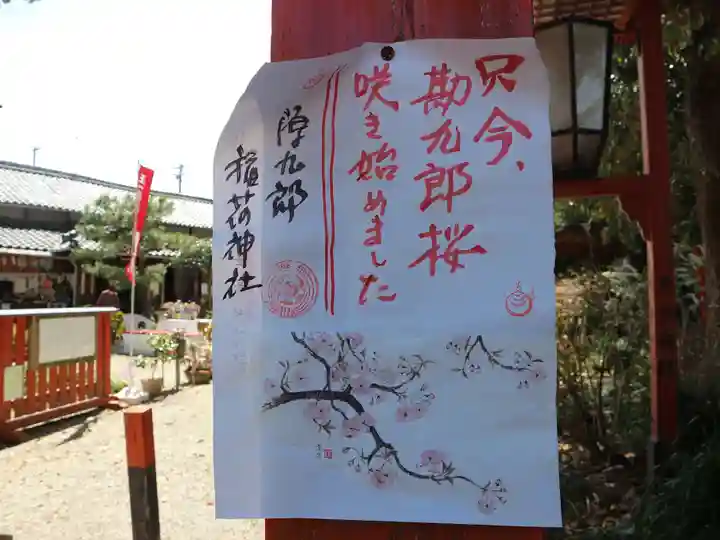 只今、
勘九郎桜
咲き始めました
源九郎
稲荷神社